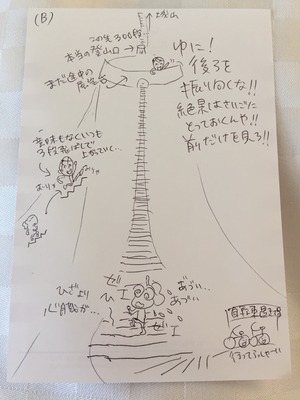 (B)
城山
この先300段
本当の登山口→
まだ途中の
ゆに!
後ろを
振り向くな!!
絶景はさいごに
とっておくんや!!
前だけを見ろ!!
意味もなくいつも
3段飛ばしで
上がっていく…
ひざより
心臓が…
ゼ
エ
ヒ
ゼ
エ
あづい…
あづい…
自転車置き場
行ってらっしゃーい